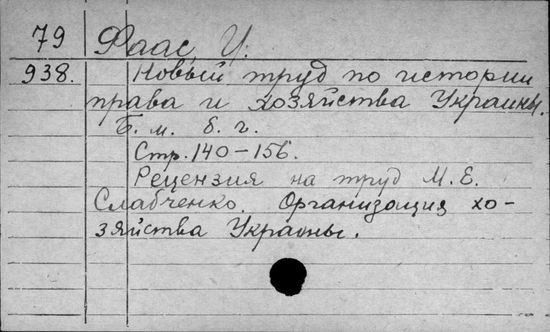 79 Фаас, И.
938. Новый труд по истории
права и хозяйства Украины.
Б. м. б. г.
Стр. 140-156.
Рецензия на труд М. Е.
Слабченко. Организация хо-
зяйства Украины.